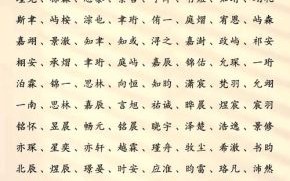 斯聿、峙桉、淙也、聿珩、侑一、庭熠、宥恩、屿森
嘉翊、景澈、知聿、知彧、浔之、嘉澍、政屿、祁安
栩安、承熠、聿珩、庭琛、嘉辰、锦佑、允琛、一珩
泊霖、锦一、思林、向恒、知昀、潇宸、梵羽、允翊
一南、思林、嘉辰、言旭、祐诚、晔晨、煜宸、宸羽
铭怀、昱晨、畅元、铭晨、晓宇、泽楚、浩逸、景修
亦琛、星奕、亦辰、述尧、新泽、牧尘、希澈、书昀
北辰、煜辰、璟晏、时安、应准、昀雷、珞凡、沛然